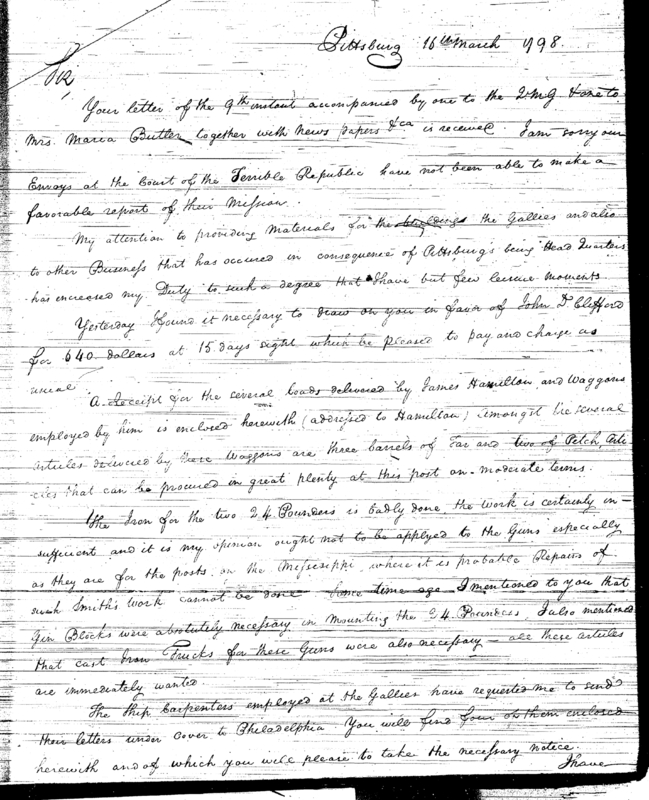 Pittsburg 16th March 1798.
Sir,
Your letter of the 9th instant accompanied by one to the Q.M.G & one to
Mrs. Maria Butler together with News papers &ca is received. I am sorry our
Envoys at the Court of the Terrible Republic have not been able to make a
favorable report of their Mission.
My attention to providing Materials for the buildings the Gallies and also
to other Business that has occured in consequence of Pittsburg's being Head Quarters
has increased my Duty to such a degree that I have but few leisure moments.
Yesterday I found it necessary to draw on you in favor of John D. Clifford
for 640 dollars at 15 days sight which be pleased to pay and charge as
usual
A Receipt for the several loads delivered by James Hamilton and Waggons
employed by him is enclosed herewith (addressed to Hamilton) Amongst the several
Articles delivered by these Waggons are three barrels of Tar and two of Pitch, Arti-
cles that can be procured in great plenty at this post on moderate terms.
The Iron for the two 24 Pounders is badly done the work is certainly in-
sufficient and it is my opinion ought not to be applyed to the Guns especially
as they are for the posts on the Mississippi where it is probable Repairs of
such Smith's Work cannot be done Some time ago I mentioned to you that
Gin Blocks were absolutely necessary in mounting the 24 Pounders, I also mentioned
that cast Iron Trucks for these Guns were also necessary — all these articles
are immediately wanted
The Ship Carpenters employed at the Gallies have requested me to send
their letters under cover to Philadelphia. You will find four of them enclosed
herewith and of which you will please to take the necessary notice.
I have